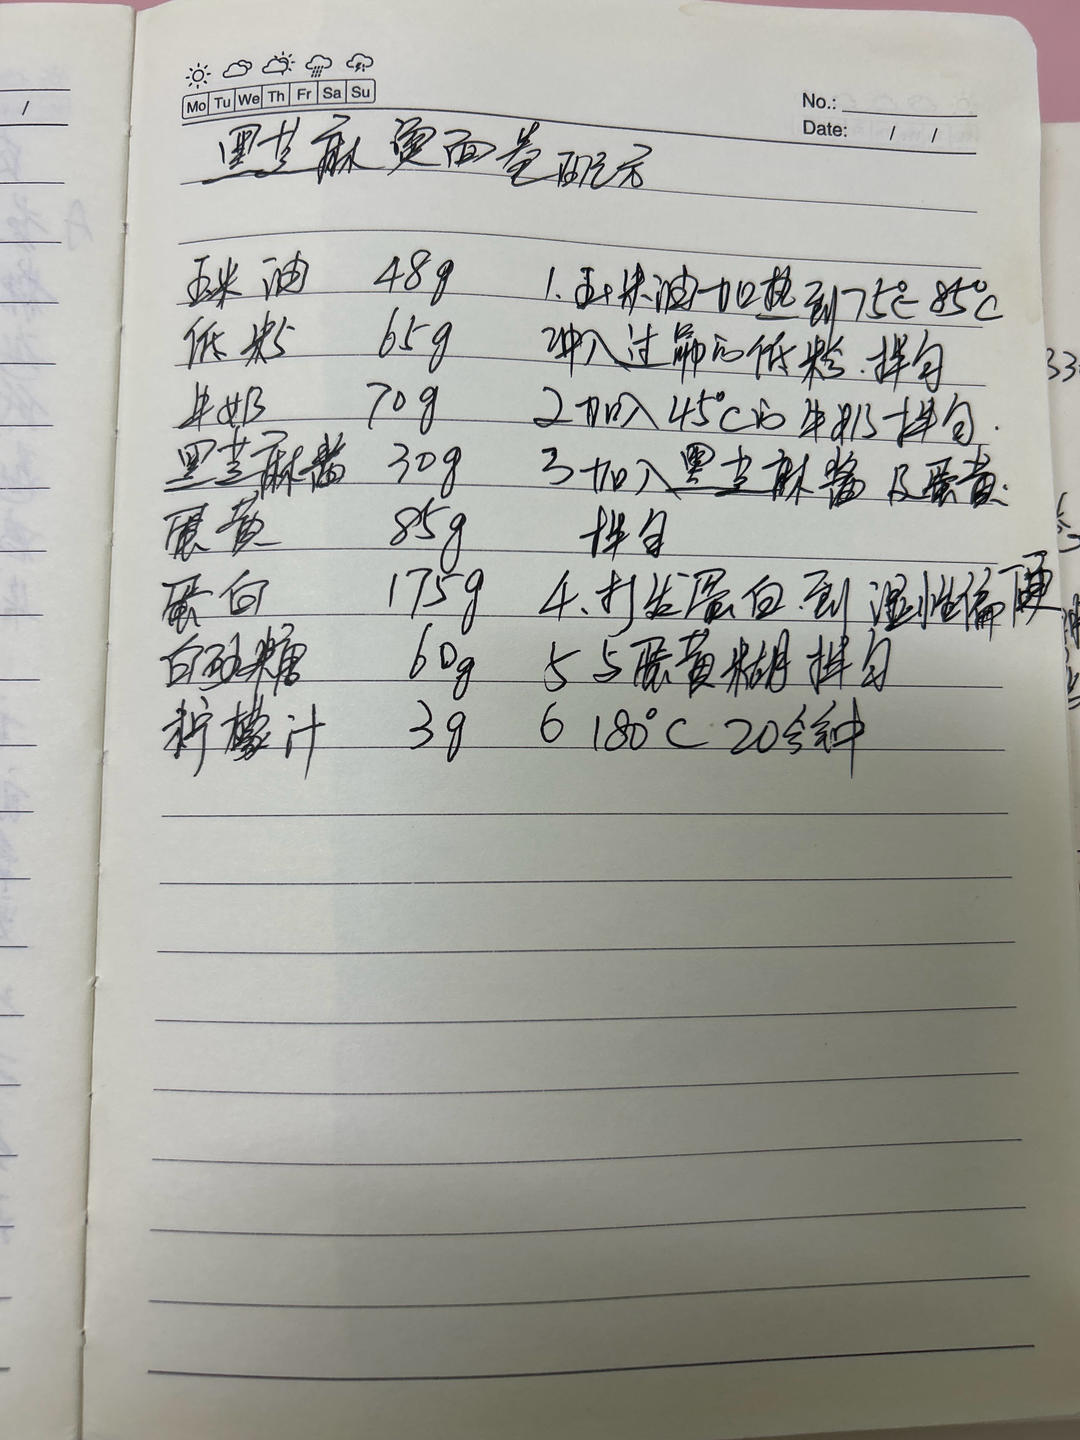 Mo Tu We Th Fr Sa Su
No.:
Date: / /
黑芝麻烫面卷配方
玉米油 48g 1.玉米油加热到75℃ 85℃
低粉 65g 冲入过筛的低粉.拌匀
牛奶 70g 2加入45℃的牛奶拌匀.
黑芝麻酱 30g 3加入黑芝麻酱及蛋黄.
蛋黄 85g 拌匀
蛋白 175g 4.打发蛋白.到湿性偏硬
白砂糖 60g 5与蛋黄糊拌匀
柠檬汁 3g 6 180℃ 20分钟
/
33